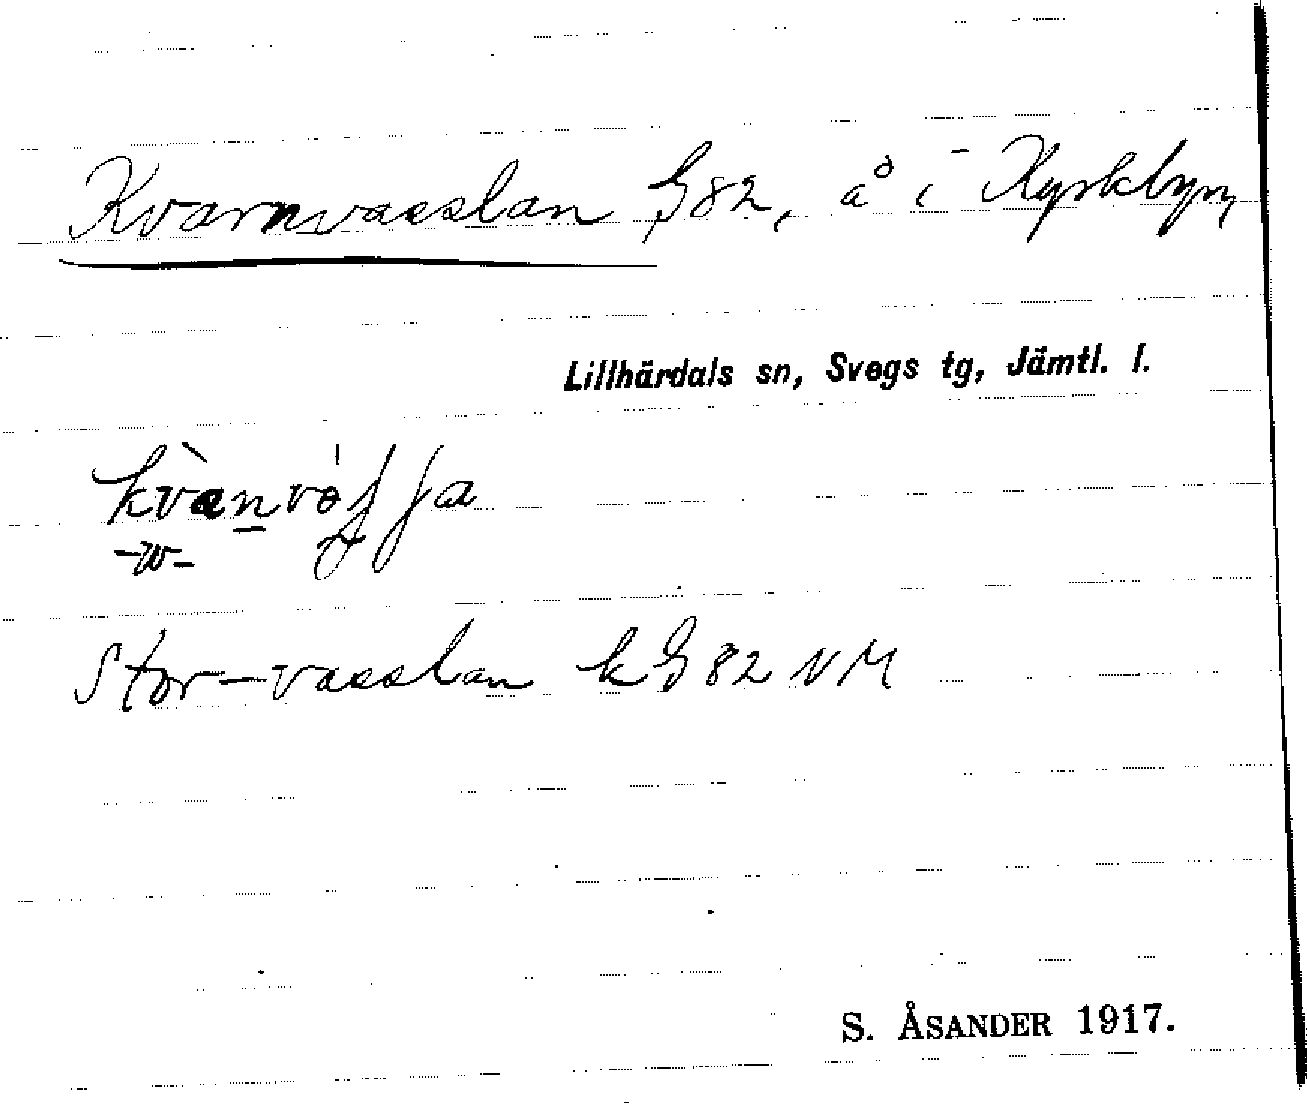 Kvarnvasslan G82, å i Kyrkbyn
Lillhärdals sn, Svegs tg, Jämtl. l.
-w-
Stor-vasslan k G 82 NM
S. ÅSANDER 1917.